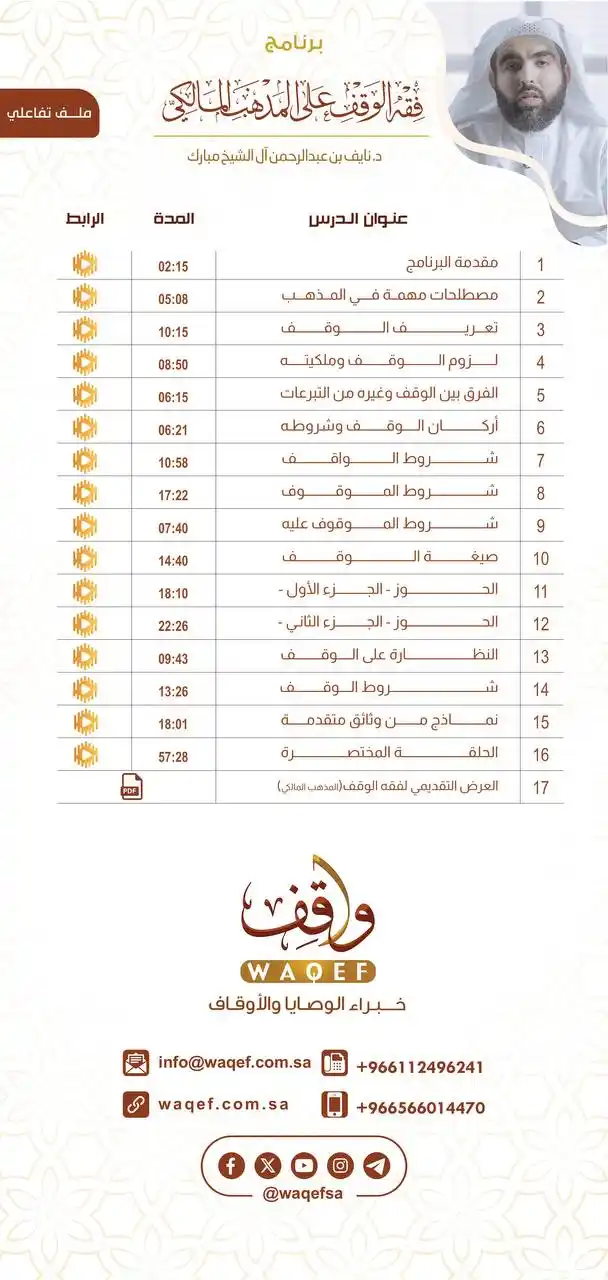 برنامج
فقه الوقف على المذهب المالكي
ملف تفاعلي
د. نايف بن عبدالرحمن آل الشيخ مبارك
عنوان الدرس المدة الرابط
1 مقدمة البرنامج 02:15
2 مصطلحات مهمة في المذهب 05:08
3 تعريف الوقف 10:15
4 لزوم الوقف وملكيته 08:50
5 الفرق بين الوقف وغيره من التبرعات 06:15
6 أركان الوقف وشروطه 06:21
7 شروط الواقف 10:58
8 شروط الموقوف 17:22
9 شروط الموقوف عليه 07:40
10 صيغة الوقف 14:40
11 الحوز - الجزء الأول - 18:10
12 الحوز - الجزء الثاني - 22:26
13 النظارة على الوقف 09:43
14 شروط الوقف 13:26
15 نماذج من وثائق متقدمة 18:01
16 الحلقة المختصرة 57:28
17 العرض التقديمي لفقه الوقف(المذهب المالكي) PDF
واقف
WAQEF
خبراء الوصايا والأوقاف
info@waqef.com.sa +966112496241
waqef.com.sa +966566014470
@waqefsa